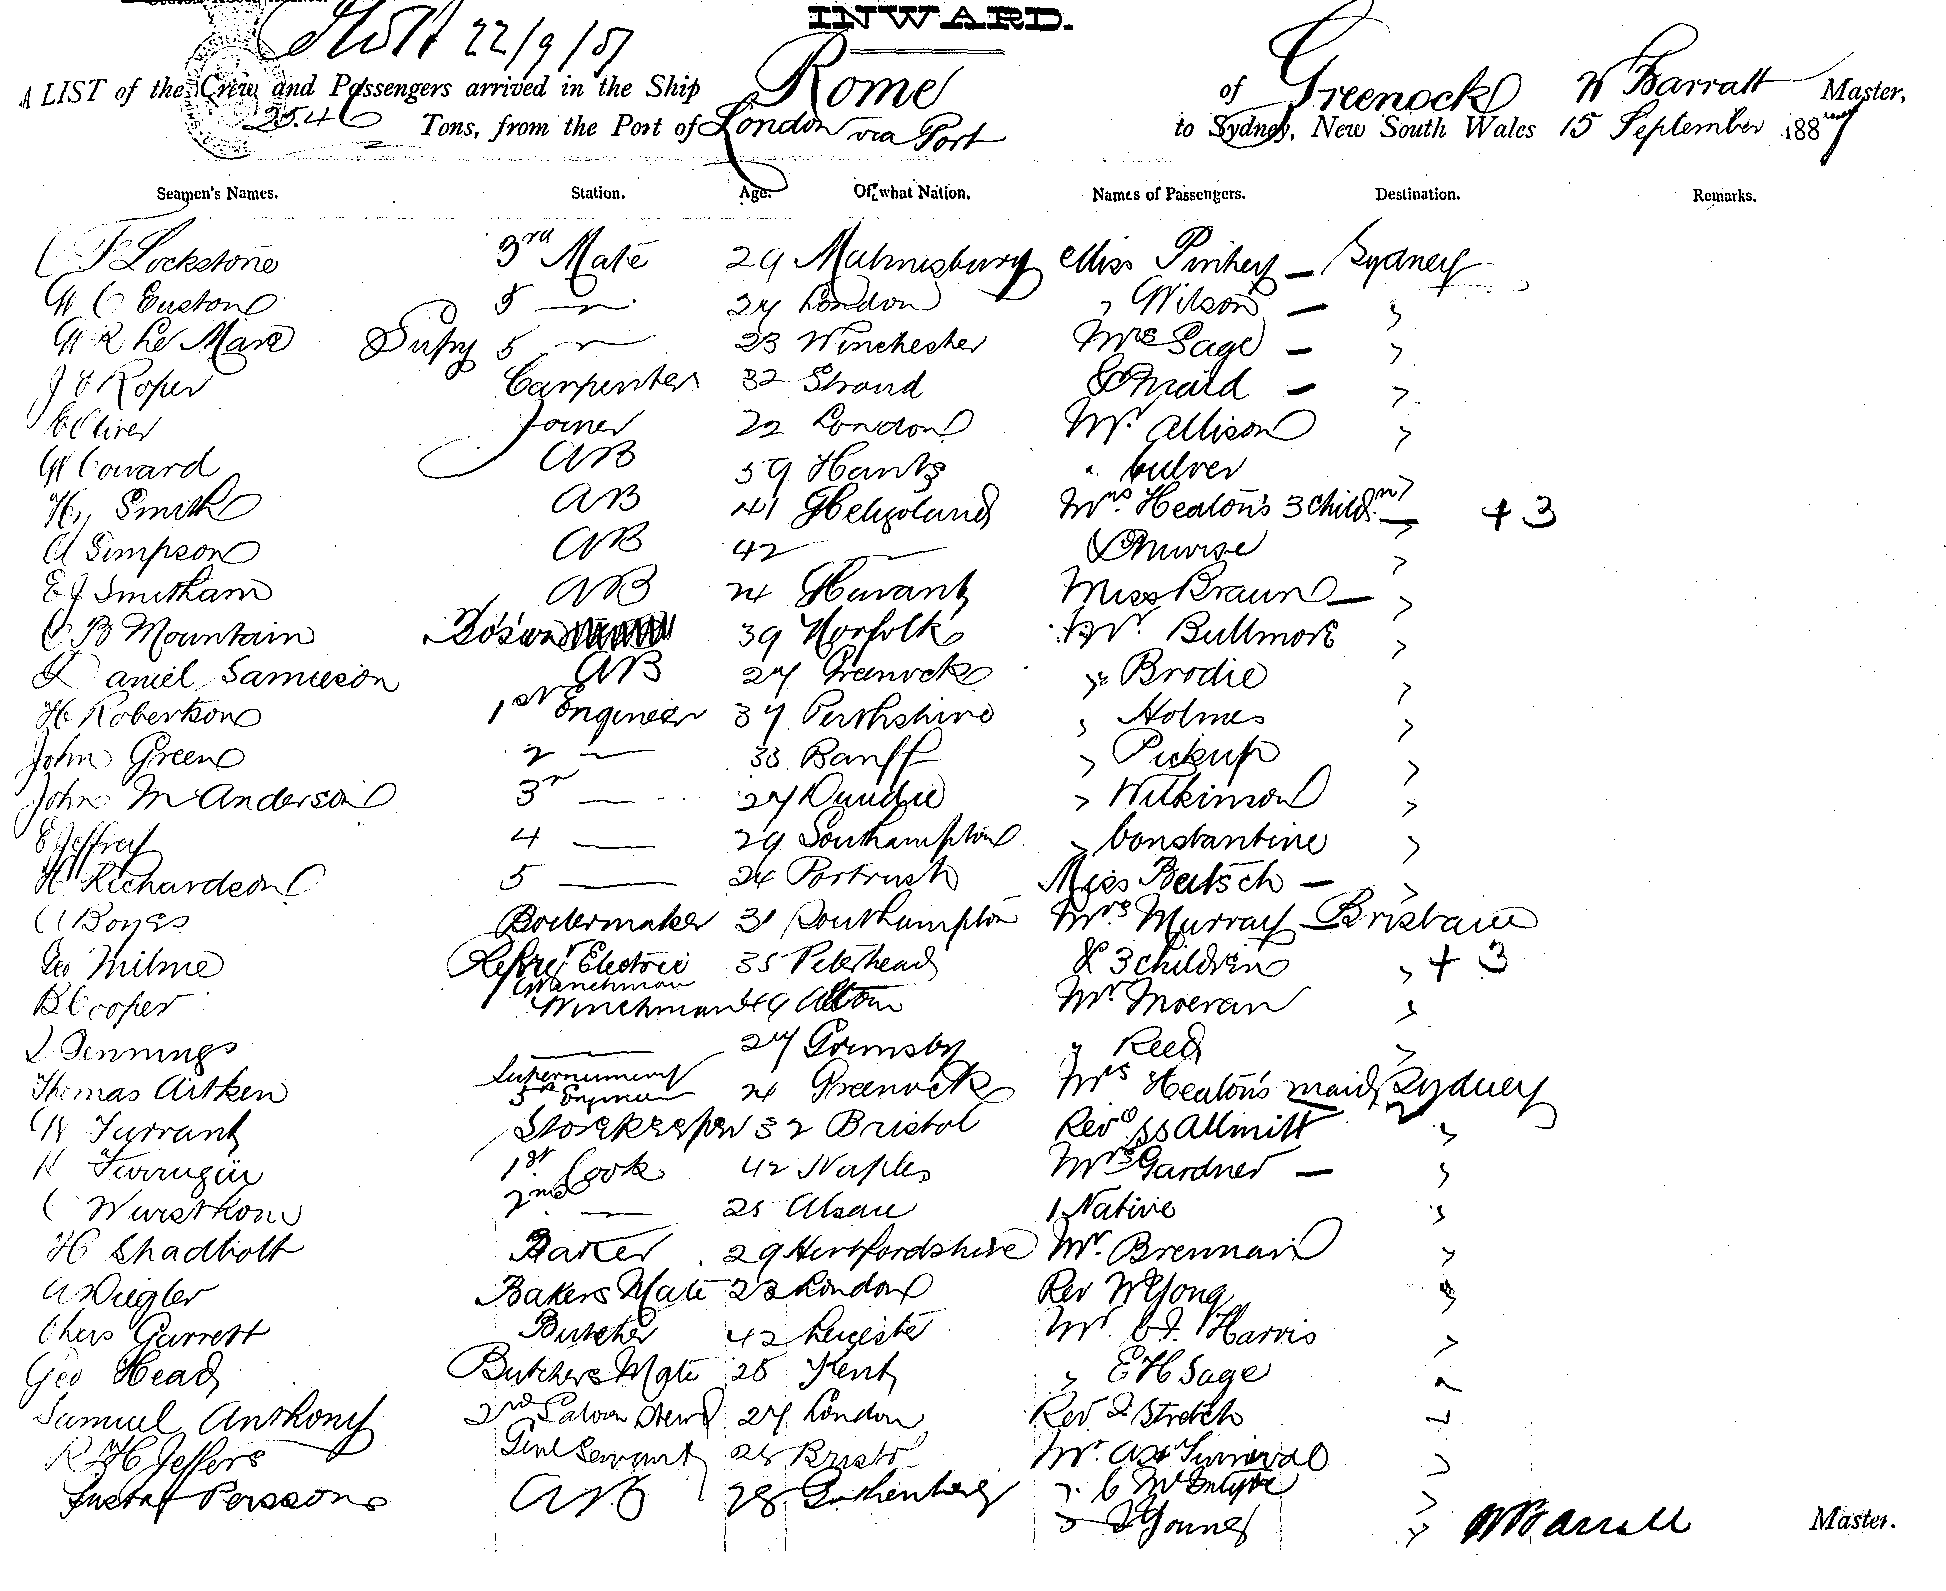 INWARD.
22/9/87
A LIST of the Crew and Passengers arrived in the Ship Rome of Greenock W Barratt Master,
2546 Tons, from the Port of London via Port to Sydney, New South Wales 15 September 1887
Seamen's Names. Station. Age. Of what Nation. Names of Passengers. Destination. Remarks.
C F Lockstone 3rd Mate 29 Malmesbury Miss Pinhey — Sydney
W C Euston 5 — 27 London " Wilson — "
W R Le Mare 5 — 23 Winchester Mrs Sage — "
Roper Carpenter 32 Strand & Maid — "
Oliver Joiner 22 London Mr. Allison "
W Coward AB 59 Hants " Culver "
Hy Smith AB 41 Heligoland Mrs. Heaton's 3 Childn — " + 3
A Simpson AB 42 — & Nurse "
E J Smitham AB 24 Havant Miss Braun — "
C B Mountain Bosun 39 Norfolk Mr. Bullmore "
Daniel Samueson AB 27 Greenock " Brodie "
H Robertson 1st Engineer 37 Perthshire " Holmes "
John Green 2 — 33 Banff " Pickup "
John M Anderson 3r — 27 Dundee " Wilkinson "
E Jeffrey 4 — 29 Southampton " Constantine "
H Richardson 5 — 24 Portrush Miss Beutsch — "
A Boyes Boilermaker 31 Southampton Mrs Murray — Brisbane
Geo Milne Refrer Electric 35 Peterhead & 3 children " + 3
B Cooper Winchman 49 Alton Mr Moeran "
Jennings — 27 Grimsby " Reed "
Thomas Aitken Supernumery 5th Engineer 24 Greenock Mrs Heaton's maid Sydney
W Tarrant Storekeeper 32 Bristol Revd SS Allnutt "
1st Cook 42 Naples Mrs Gardner — "
C 2nd — 25 Alsace 1 Native "
H Shadbolt Baker 29 Hertfordshire Mr. Brennan "
A Diegler Bakers Mate 23 London Rev W Yong "
Chas Garrett Butcher 42 Leicester Mr C J Harris "
Geo Head Butchers Mate 25 Kent " E H Sage "
Samuel Anthony 2nd Saloon Stewd 27 London Rev J Stretch "
R H Jeffers Genl Servant 25 Bristol Mr. "
Gustaf Perssons AB 28 Gothenberg " C McIntyre "
" J Young " W Barratt Master.